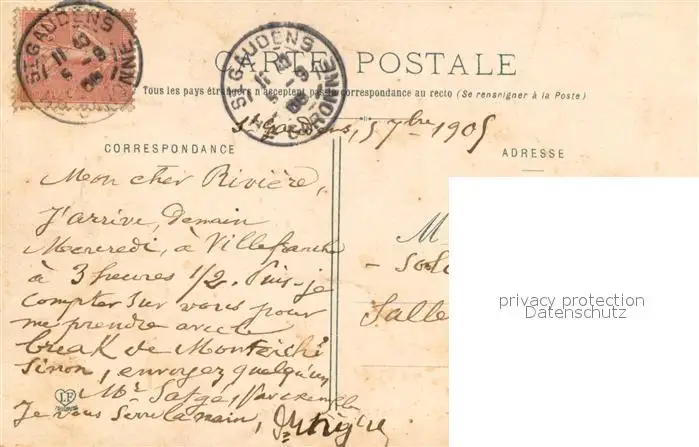 ST GAUDENS
ST GAUDENS
CARTE POSTALE
Tous les pays étrangers n'acceptent pas la correspondance au recto (Se renseigner à la Poste)
St Gaudens, 5 7bre 1905
CORRESPONDANCE
ADRESSE
Mon cher Rivière,
J'arrive, Demain
Mercredi, à Villefranche
à 3 heures 1/2. Puis-je
compter sur vous pour
me prendre avec le
break de Monteich
Sinon, envoyez quelqu'un
Mr Satgé, par exemple
Je vous serre la main,
M
Salle
privacy protection
Datenschutz